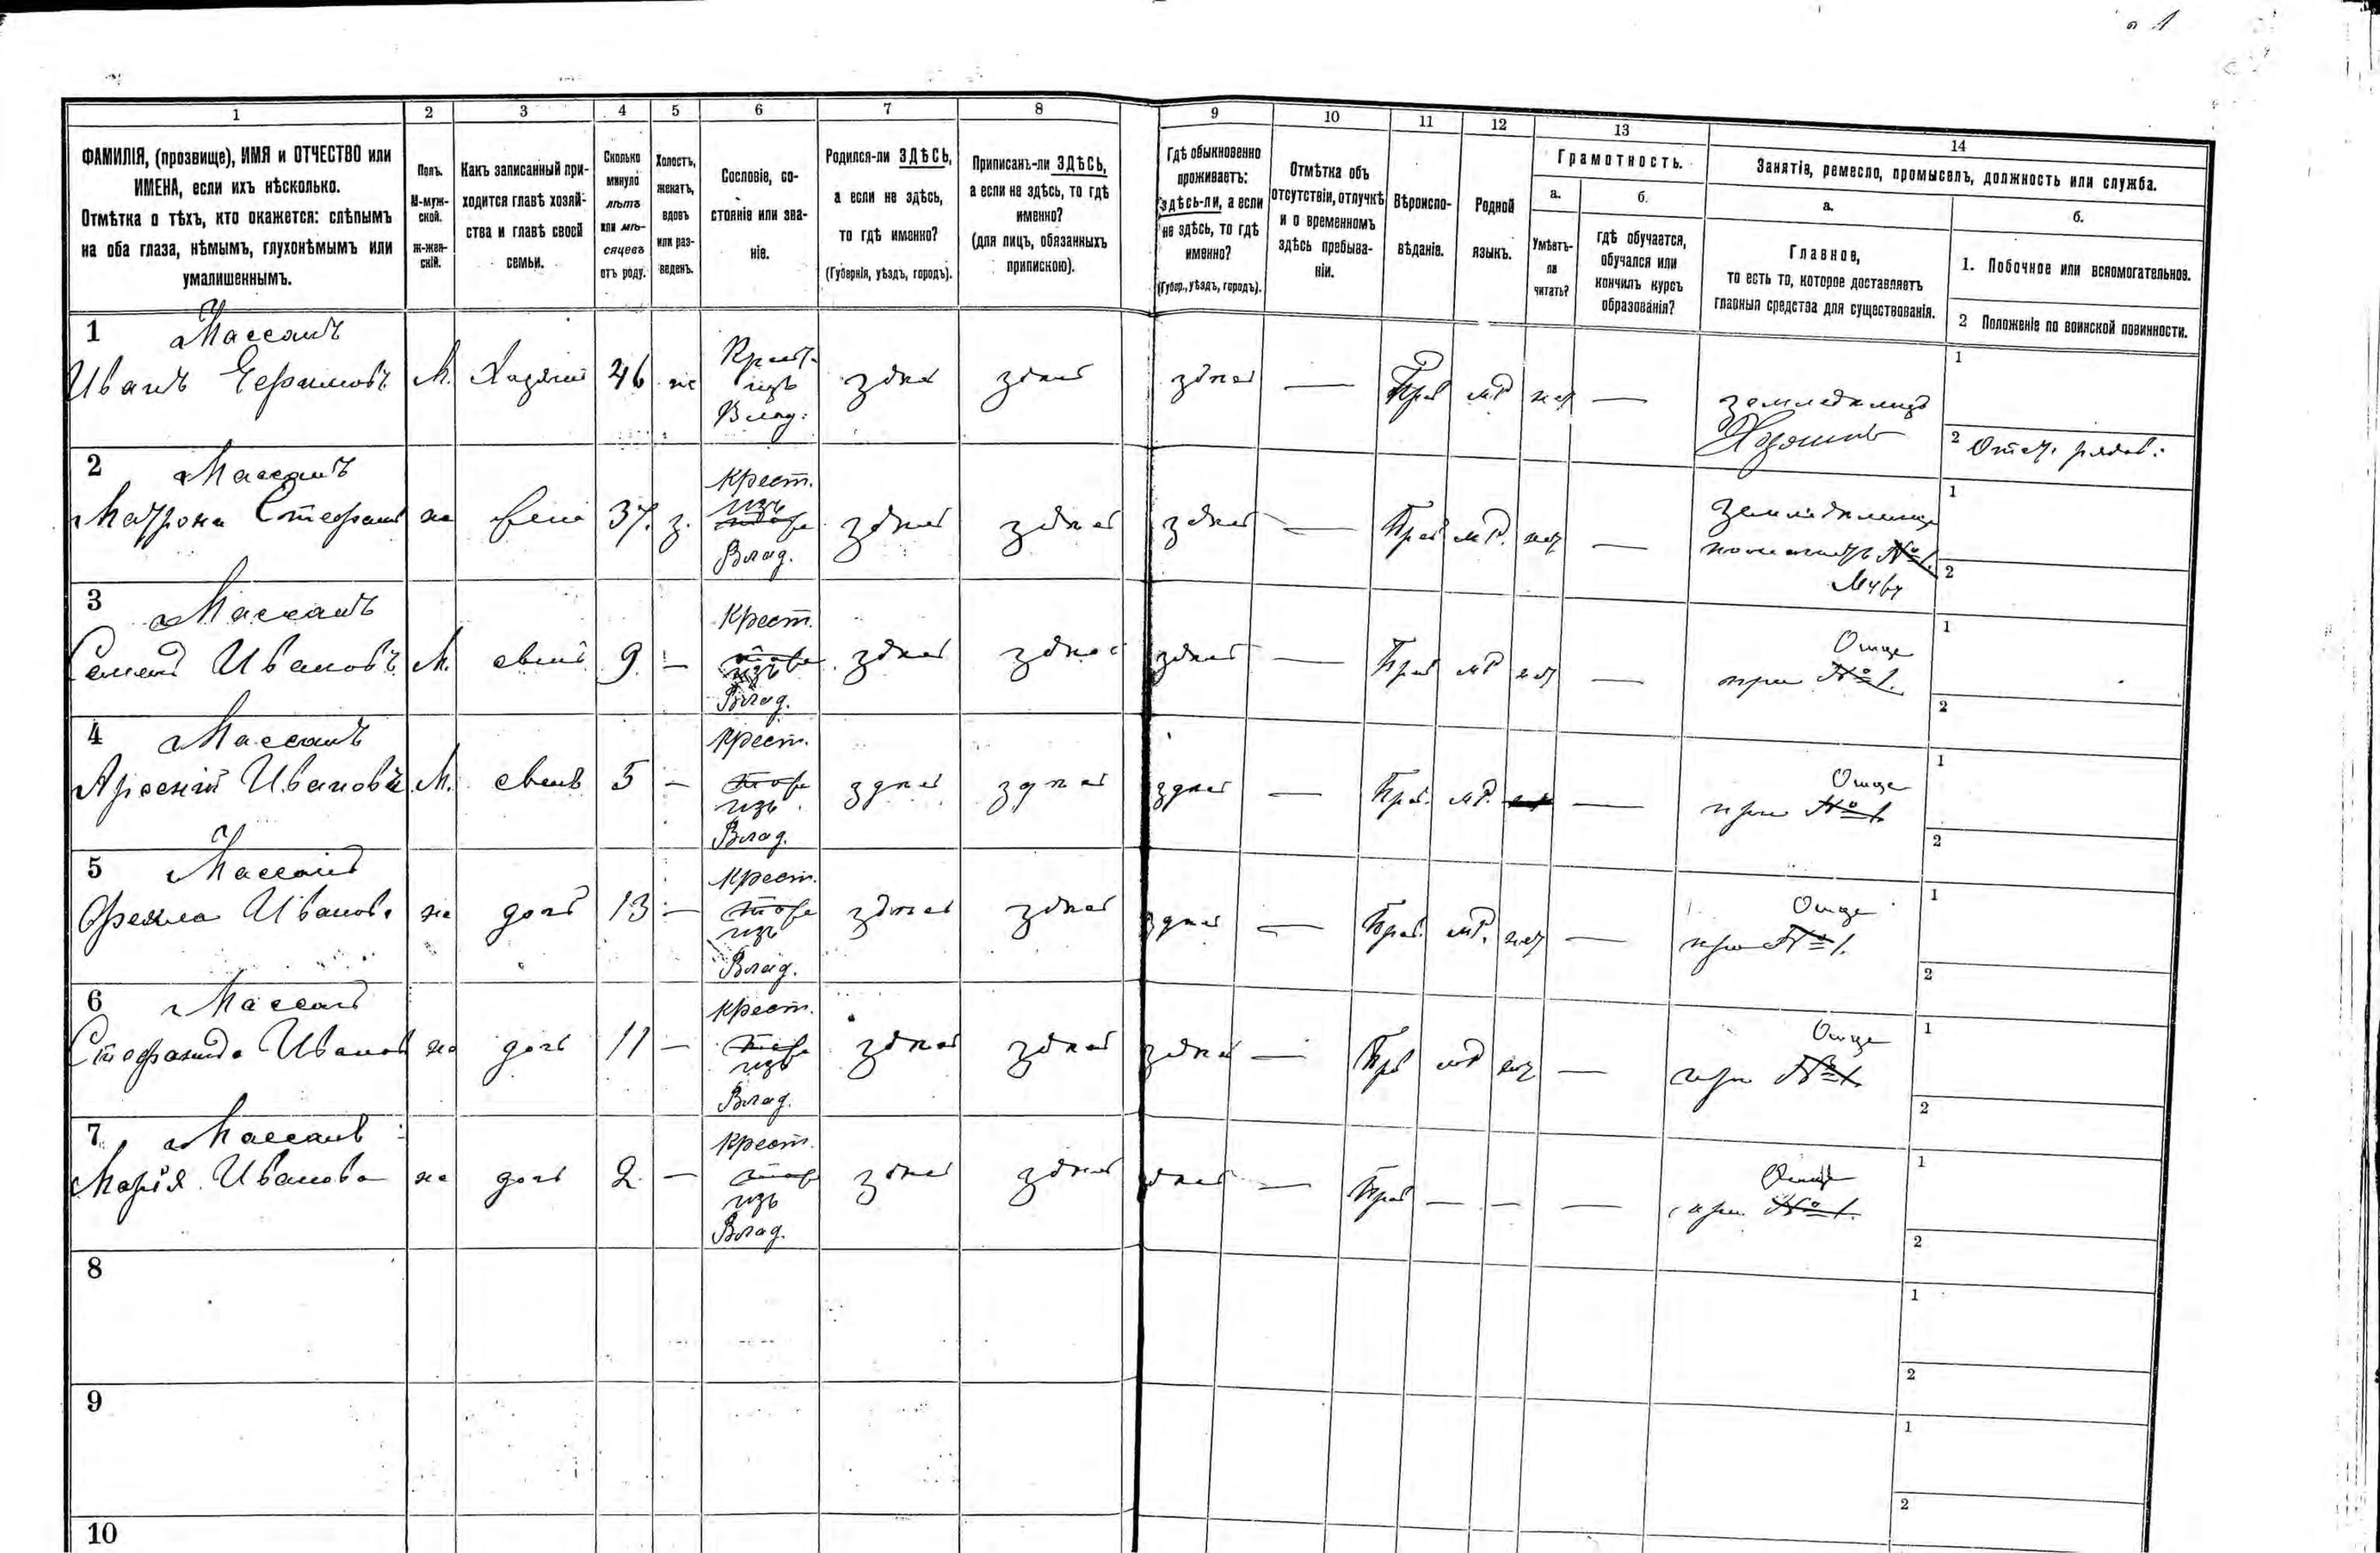 1
1 2 3 4 5 6 7 8 9 10 11 12 13 14
ФАМИЛІЯ, (прозвище), ИМЯ и ОТЧЕСТВО или
ИМЕНА, если ихъ нѣсколько.
Отмѣтка о тѣхъ, кто окажется: слѣпымъ
на оба глаза, нѣмымъ, глухонѣмымъ или
умалишеннымъ.
Полъ.
М-муж-
ской.
Ж-жен-
скій.
Какъ записанный при-
ходится главѣ хозяй-
ства и главѣ своей
семьи.
Сколько
минуло
лѣтъ
или мѣ-
сяцевъ
отъ роду.
Холостъ,
женатъ,
вдовъ
или раз-
веденъ.
Сословіе, со-
стояніе или зва-
ніе.
Родился-ли ЗДѢСЬ,
а если не здѣсь,
то гдѣ именно?
(Губернія, уѣздъ, городъ).
Приписанъ-ли ЗДѢСЬ,
а если не здѣсь, то гдѣ
именно?
(для лицъ, обязанныхъ
припискою).
Гдѣ обыкновенно
проживаетъ:
здѣсь-ли, а если
не здѣсь, то гдѣ
именно?
(Губер., уѣздъ, городъ).
Отмѣтка объ
отсутствіи, отлучкѣ
и о временномъ
здѣсь пребыва-
ніи.
Вѣроиспо-
вѣданіе.
Родной
языкъ.
Грамотность.
а.
Умѣетъ-
ли
читать?
б.
гдѣ обучается,
обучался или
кончилъ курсъ
образованія?
Занятіе, ремесло, промыселъ, должность или служба.
а.
Главное,
то есть то, которое доставляетъ
главныя средства для существованія.
б.
1. Побочное или вспомогательное.
2 Положеніе по воинской повинности.
1 Массанъ
Иванъ М. Хазяинъ 46 Крест. изъ Влад. здѣсь здѣсь здѣсь — Прав мР нет — земледѣлецъ
Хозяинъ
1
2 Отст. рядов.
2 Массанъ
Матрона Стефан же жена 37. з. Крест. изъ Влад. здѣсь здѣсь здѣсь — Прав мР. нет — №1.
1
2
3 Массанъ
Семенъ Ивановъ М. сынъ 9 — Крест. изъ Влад. здѣсь здѣсь здѣсь — Прав мР нет — при №1. Отце
1
2
4 Массанъ
Арсеній Ивановъ М. сынъ 5 — Крест. изъ Влад. здѣсь здѣсь здѣсь — Прав. мР. — при №1 Отце
1
2
5 Массанъ
Фекла Иванова же дочь 13 — Крест. изъ Влад. здѣсь здѣсь здѣсь — Прав. мР. нет — при №1. Отце
1
2
6 Массанъ
Стефанида Иванов же дочь 11 — Крест. изъ Влад. здѣсь здѣсь здѣсь — Прав мР нет — при №1. Отце
1
2
7 Массанъ
Марія Иванова же дочь 2 — Крест. изъ Влад. здѣсь здѣсь здѣсь — Прав — — — при №1. Отце
1
2
8
1
2
9
1
2
10